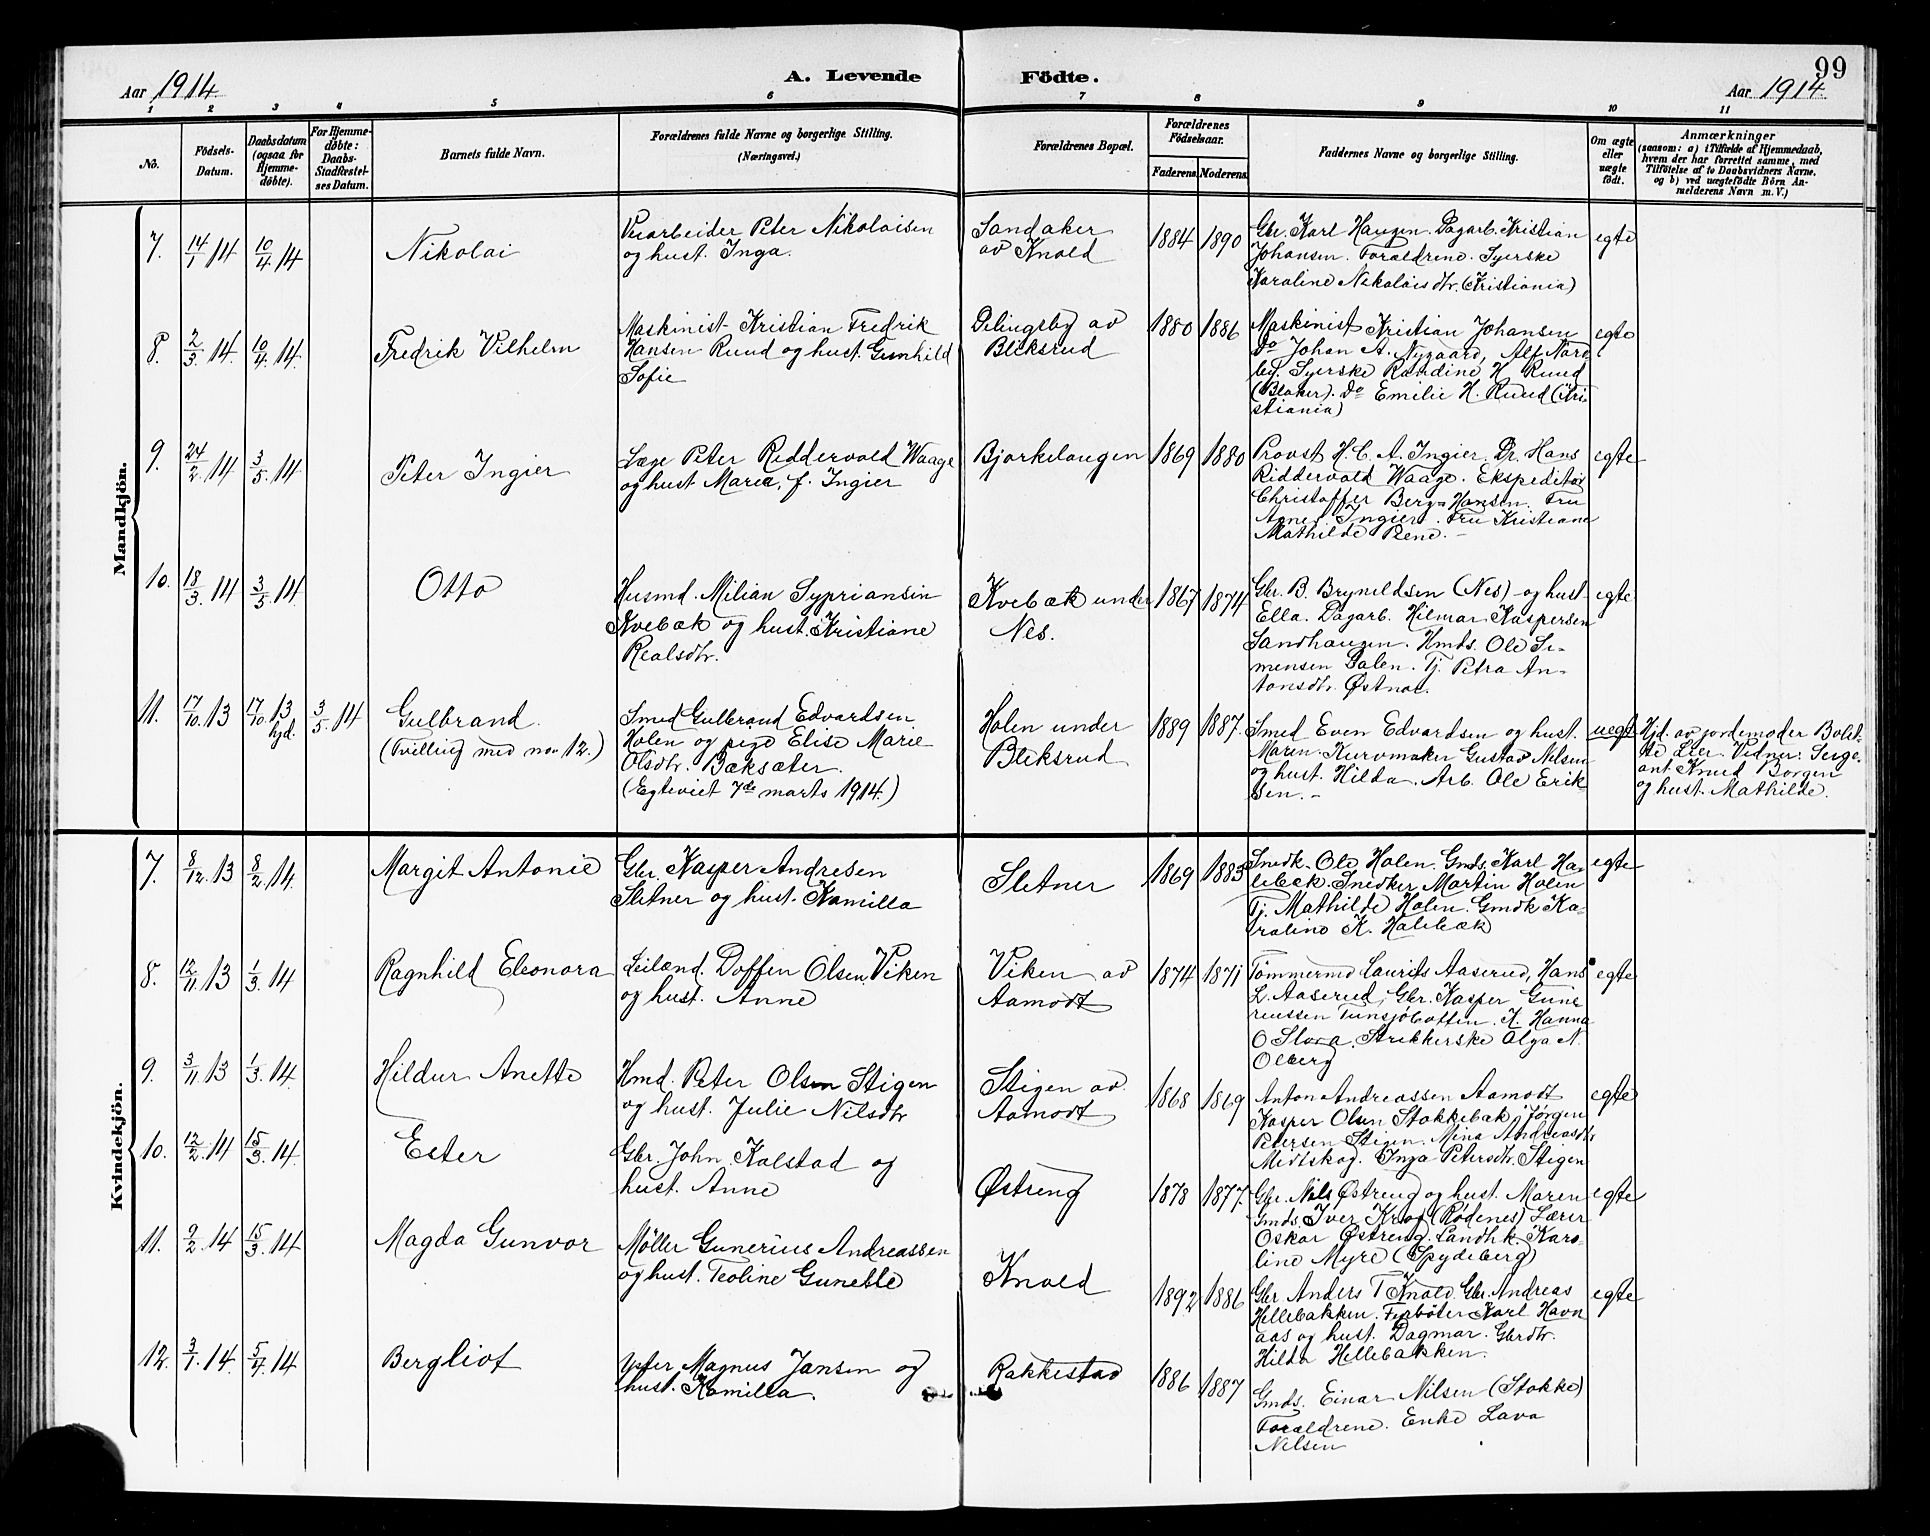 99
Aar 1914. A. Levende Födte. Aar 1914.
1 2 3 4 5 6 7 8 9 10 11
No.
Födsels-
Datum.
Daabsdatum
(ogsaa for
Hjemme-
döbte).
For Hjemme-
döbte:
Daabs-
Stadfæstel-
ses Datum.
Barnets fulde Navn.
Forældrenes fulde Navne og borgerlige Stilling.
(Næringsvei.)
Forældrenes Bopæl.
Forældrenes
Födselsaar.
Faderens. Moderens.
Faddernes Navne og borgerlige Stilling.
Om ægte
eller
uægte
födt.
Anmærkninger
(saasom: a) i Tilfælde af Hjemmedaab,
hvem der har forrettet samme, med
Tilföielse af to Daabsvidners Navne.
og b) ved uægtefödte Börn An-
melderens Navn m. V.)
Mandkjön.
7. 14/1 14 10/4 14 Nikolai
Veiarbeider Peter Nikolaisen
og hust. Inga.
Sandaker
av Knold
1884 1890
Gbr. Karl Haugen. Dagarb. Kristian
Johansen. Forældrene. Syerske
Karoline Nikolaisdtr. (Kristiania)
egte
8. 2/3 14. 10/4 14. Fredrik Vilhelm
Maskinist Kristian Fredrik
Hansen Ruud og hust. Gunhild
Sofie
Delingsby av
Bliksrud
1880 1886
Maskinist Kristian Johansen
do Johan A. Nygaard, Alf Nord
by. Syerske Randine H. Ruud
(Blaker). do Emilie H. Ruud (Kri-
stiania)
egte
9. 24/2 14 3/5 14 Peter Ingier
Læge Peter Riddervold Waage
og hust Marie, f. Ingier
Bjørkelangen
1869 1880
Provst H. C. A. Ingier, Dr. Hans
Riddervold Waage. Ekspeditør
Christoffer Berg-Hansen. Fru
Agnes Ingier. Fru Kristiane
Mathilde Bene.
egte
10. 18/3 14 3/5 14. Otto
Husmd. Milian Sypriansin
Kvebæk og hust. Kristiane
Realsdtr.
Kvebæk under
Nes.
1867 1874
Gbr. B. Bryneldsen (Nes) og hust
Ella. Dagarb. Hilmar Kaspersen
Sandhaugen. Hmds. Ole Si-
mensen Dalen. Tj. Petra An-
tonsdtr. Østnor.
egte
11. 17/10 13 17/10 13 hjd. 3/5 14 Gulbrand.
(Tvilling med no. 12.)
Smed Gulbrand Edvardsen
Holen og pige Elise Marie
Olsdtr. Bæksæter.
(Egteviet 7de marts 1914.)
Holen under
Bliksrud
1889 1887.
Smed Even Edvardsen og hust.
Maren. Kurvmaker Gustav Nilsen
og hust. Hilda. Arb. Ole Erik-
sen.
uegte
Hjd. av jordemoder Bolet-
te Lier. Vidner: Serge-
ant Knud Borgen
og hust. Mathilde.
Kvindekjön.
7. 8/12 13 8/2 14. Margit Antonie
Gbr. Kasper Andresen
Sletner og hust. Kamilla
Sletner
1869 1883
Snedk. Ole Holen. Gmds. Karl Ha-
lebæk. Snedker Martin Holen
Tj. Mathilde Holen. Gmdk Ka-
roline K. Halebæk
egte
8. 12/11 13 1/3 14 Ragnhild Eleonora
Leilænd. Doffen Olsen Viken
og hust. Anne
Viken av
Aamodt
1874 1871
Tømmermd Laurits Aaserud, Hans
L. Aaserud, Gbr. Kasper Gune
riussen Tunsjøbotten. K. Hanna
O Slora. Strikkerske Olga N.
Olberg
egte
9. 3/11 13 1/3 14. Hildur Anette
Hmd. Peter Olsen Stigen
og hust. Julie Nilsdtr
Stigen av
Aamodt
1868 1869
Anton Andreassen Aamodt
Kasper Olsen Stokkebæk, Jørgen
Petersen Stigen. Mina Andreasdtr
Midtskog. Inga Petersdtr. Stigen
egte
10. 12/2 14 15/3 14. Ester
Gbr. John Kolstad og
hust. Anne
Østreng
1878 1877.
Gbr. Nils Østreng og hust. Maren
Gmds. Iver Krog (Rødenes) Lærer
Oskar Østreng. Landhk. Karo-
line Myre (Spydeberg)
egte
11. 9/2 14 15/3 14 Magda Gunvor
Møller Gunerius Andreassen
og hust. Teoline Gunette
Knold
1892 1886
Gbr Anders T Knold. Gbr. Andreas
Hellebakken. Karl Havn
aas og hust. Dagmar. Gbrdtr.
Hilda Hellebakken.
egte
12. 3/1 14. 5/4 14 Bergliot
Magnus Jansen og
hust. Kamilla.
Rakkestad
1886 1887
Gmds. Einar Nilsen (Stokke)
Forældrene. Enke Lava
Nilsen